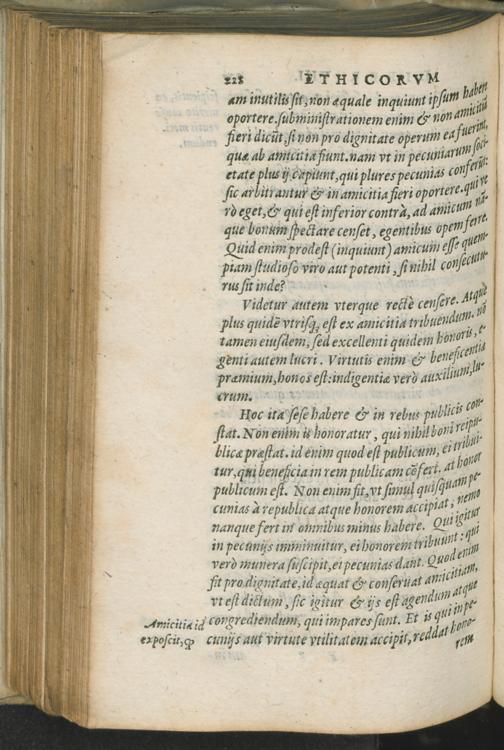 228 ETHICORVM
am inutilis sit, non æquale inquiunt ipsum habere
oportere. subministrationem enim & non amicitiā
fieri dicūt, si non pro dignitate operum ea fuerint,
quæ ab amicitia fiunt. nam vt in pecuniarum soci-
etate plus ij capiunt, qui plures pecunias conferūt:
sic arbitrantur & in amicitia fieri oportere. qui ve
rò eget, & qui est inferior contrà, ad amicum nā-
que bonum spectare censet, egentibus opem ferre.
Quid enim prodest (inquiunt) amicum esse quem-
piam studioso viro aut potenti, si nihil consecutu-
rus sit inde?
Videtur autem vterque rectè censere. Atque
plus quidē vtrisq; est ex amicitia tribuendum. nō
tamen eiusdem, sed excellenti quidem honoris, e-
genti autem lucri. Virtutis enim & beneficentiæ
præmium, honos est: indigentiæ verò auxilium, lu-
crum.
Hoc ita sese habere & in rebus publicis con-
stat. Non enim is honoratur, qui nihil boni reipu-
blicæ præstat. id enim quod est publicum, ei tribui-
tur, qui beneficia in rem publicam cōfert. at honor
publicum est. Non enim fit, vt simul quisquam pe-
cunias à republica atque honorem accipiat, nemo
nanque fert in omnibus minus habere. Qui igitur
in pecunijs imminuitur, ei honorem tribuunt: qui
verò munera suscipit, ei pecunias dant. Quod enim
fit pro dignitate, id æquat & conseruat amicitiam,
vt est dictum, sic igitur & ijs est agendum atque
congrediendum, qui impares sunt. Et is qui in pe-
cunijs aut virtute vtilitatem accipit, reddat hono-
rem
Amicitia id
exposcit, ꝙ